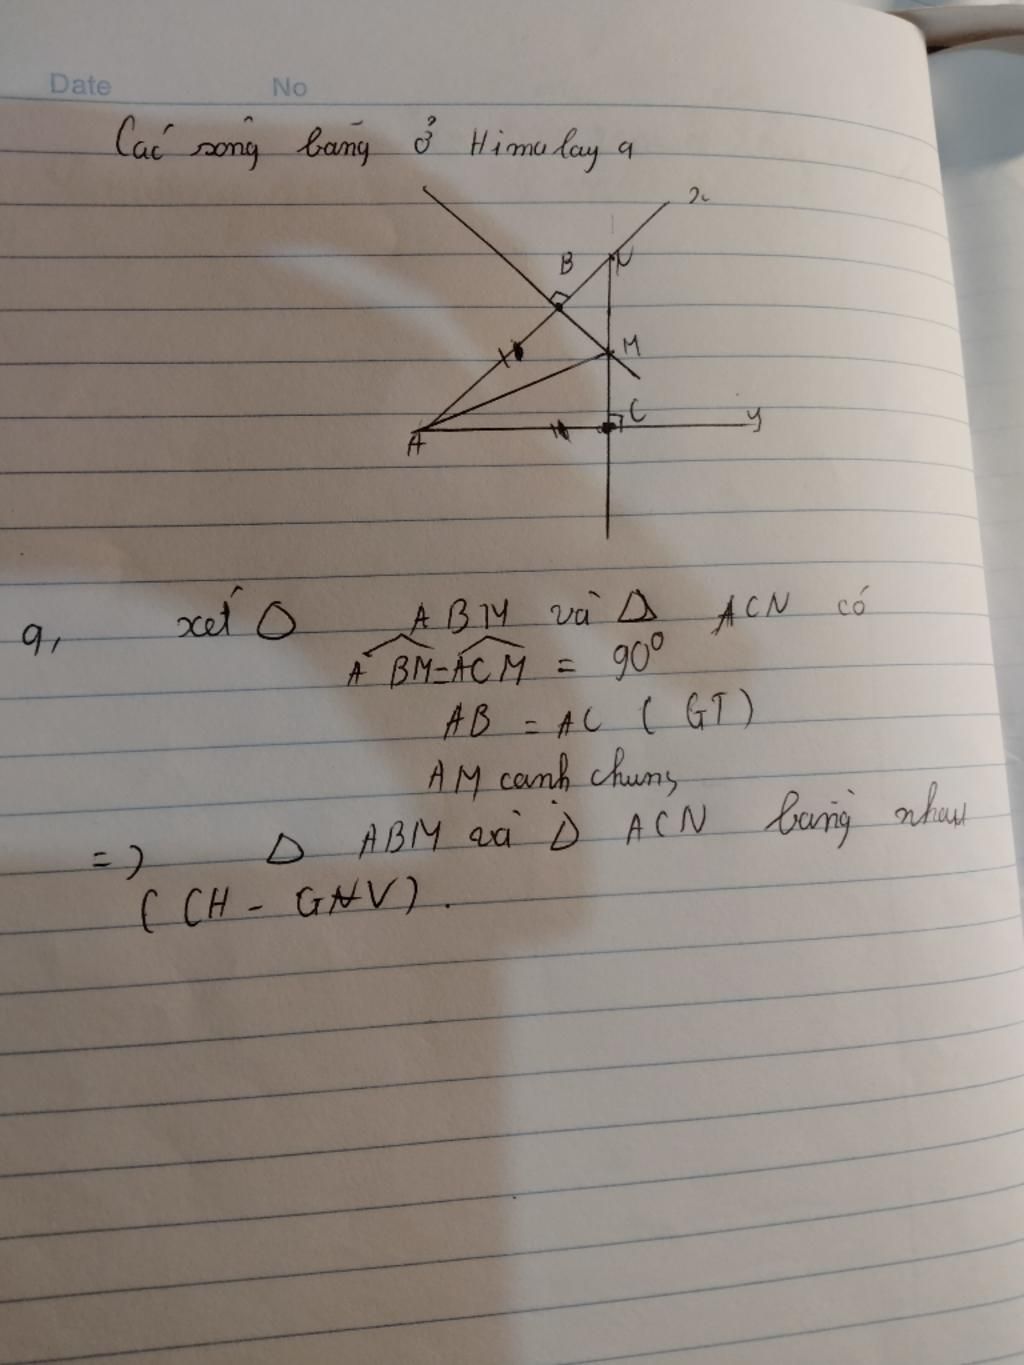 Date No
Các sông băng ở Himalaya
x
B N
M
C y
A
a, xét Δ ABM và Δ ACN có
ABM = ACM = 90°
AB = AC (GT)
AM cạnh chung
=> Δ ABM và Δ ACN bằng nhau
(CH - GNV).